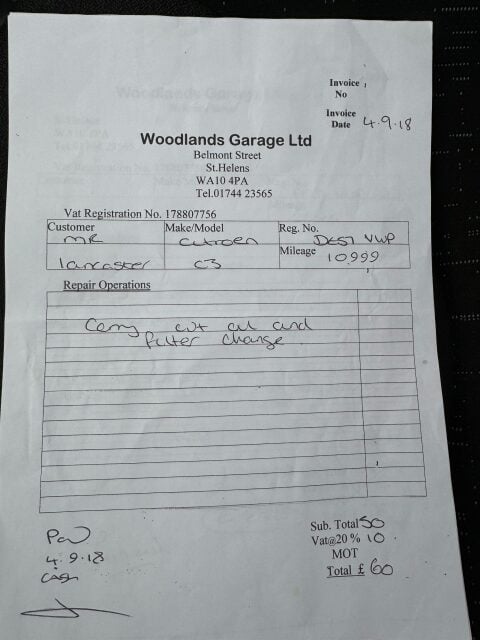 Invoice
No
Invoice
Date 4.9.18
Woodlands Garage Ltd
Belmont Street
St.Helens
WA10 4PA
Tel.01744 23565
Vat Registration No. 178807756
Customer Make/Model Reg. No.
MR Citroen VWP
Mileage 10999
Lancaster C3
Repair Operations
Carry out oil and
filter change
Sub. Total 50
Vat@20 % 10
MOT
Total £ 60
Pd
4.9.18
Cash